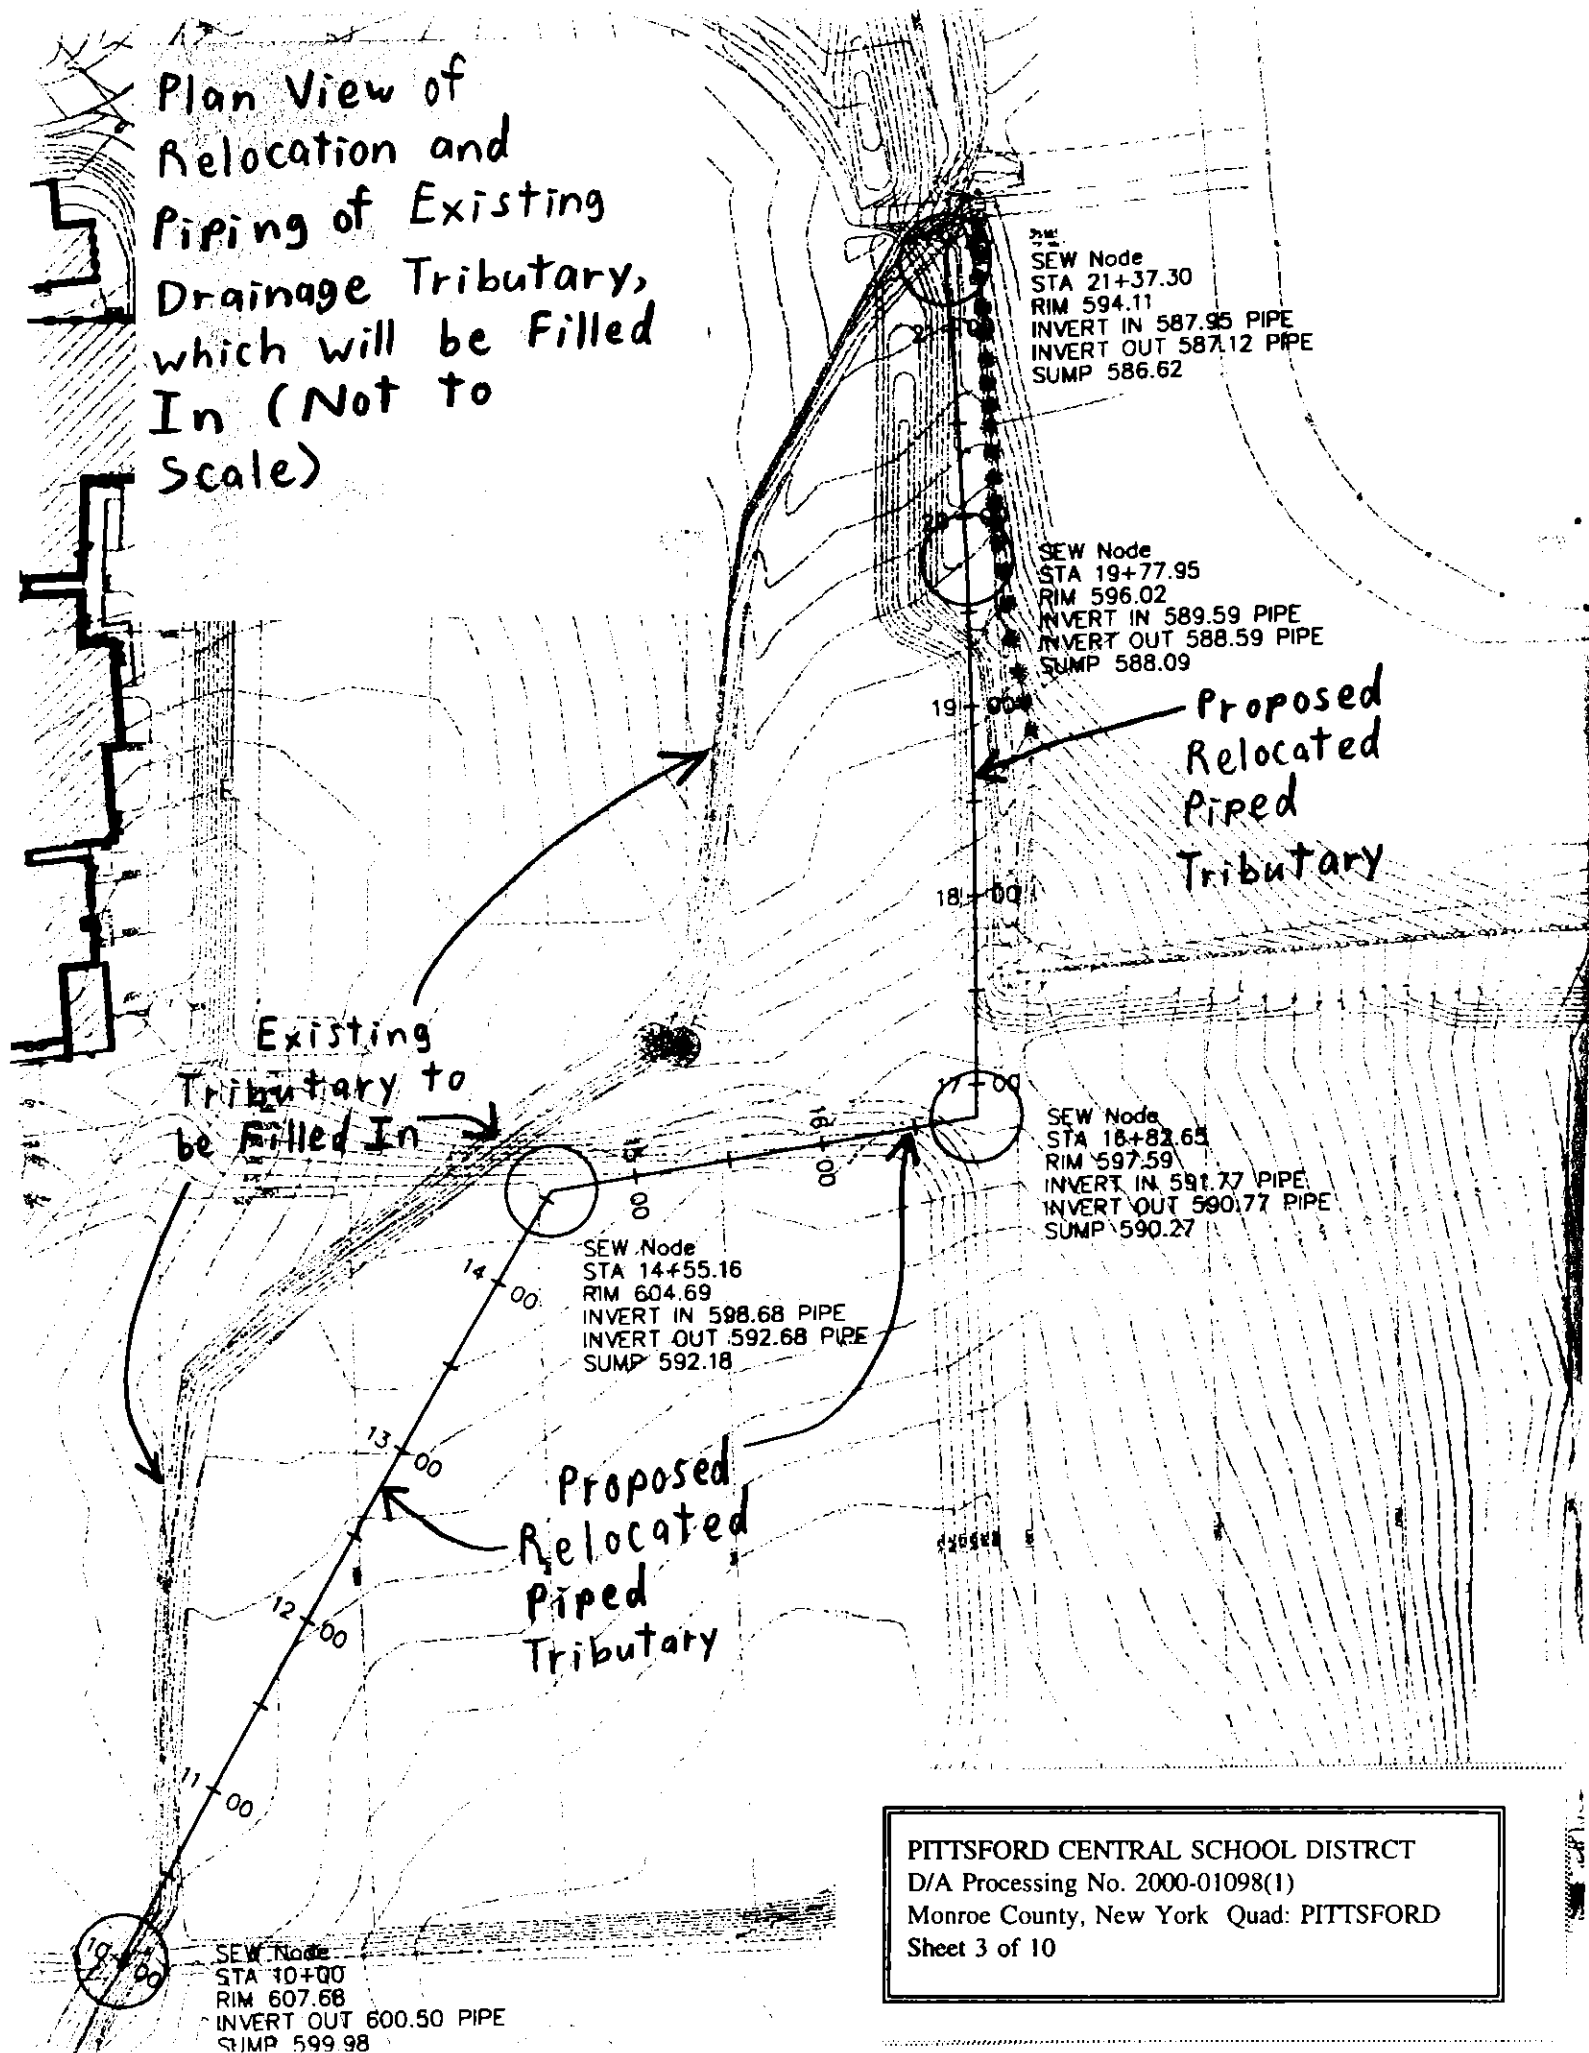 Plan View of
Relocation and
Piping of Existing
Drainage Tributary,
which will be Filled
In (Not to
Scale)
SEW Node
STA 21+37.30
RIM 594.11
INVERT IN 587.95 PIPE
INVERT OUT 587.12 PIPE
SUMP 586.62
SEW Node
STA 19+77.95
RIM 596.02
INVERT IN 589.59 PIPE
INVERT OUT 588.59 PIPE
SUMP 588.09
19+00
Proposed
Relocated
Piped
Tributary
18+00
Existing
Tributary to
be Filled In
17+00
16+00
SEW Node
STA 16+82.65
RIM 597.59
INVERT IN 591.77 PIPE
INVERT OUT 590.77 PIPE
SUMP 590.27
SEW Node
STA 14+55.16
RIM 604.69
INVERT IN 598.68 PIPE
INVERT OUT 592.68 PIPE
SUMP 592.18
14+00
13+00
Proposed
Relocated
Piped
Tributary
12+00
11+00
PITTSFORD CENTRAL SCHOOL DISTRCT
D/A Processing No. 2000-01098(1)
Monroe County, New York Quad: PITTSFORD
Sheet 3 of 10
10+00
SEW Node
STA 10+00
RIM 607.68
INVERT OUT 600.50 PIPE
SUMP 599.98